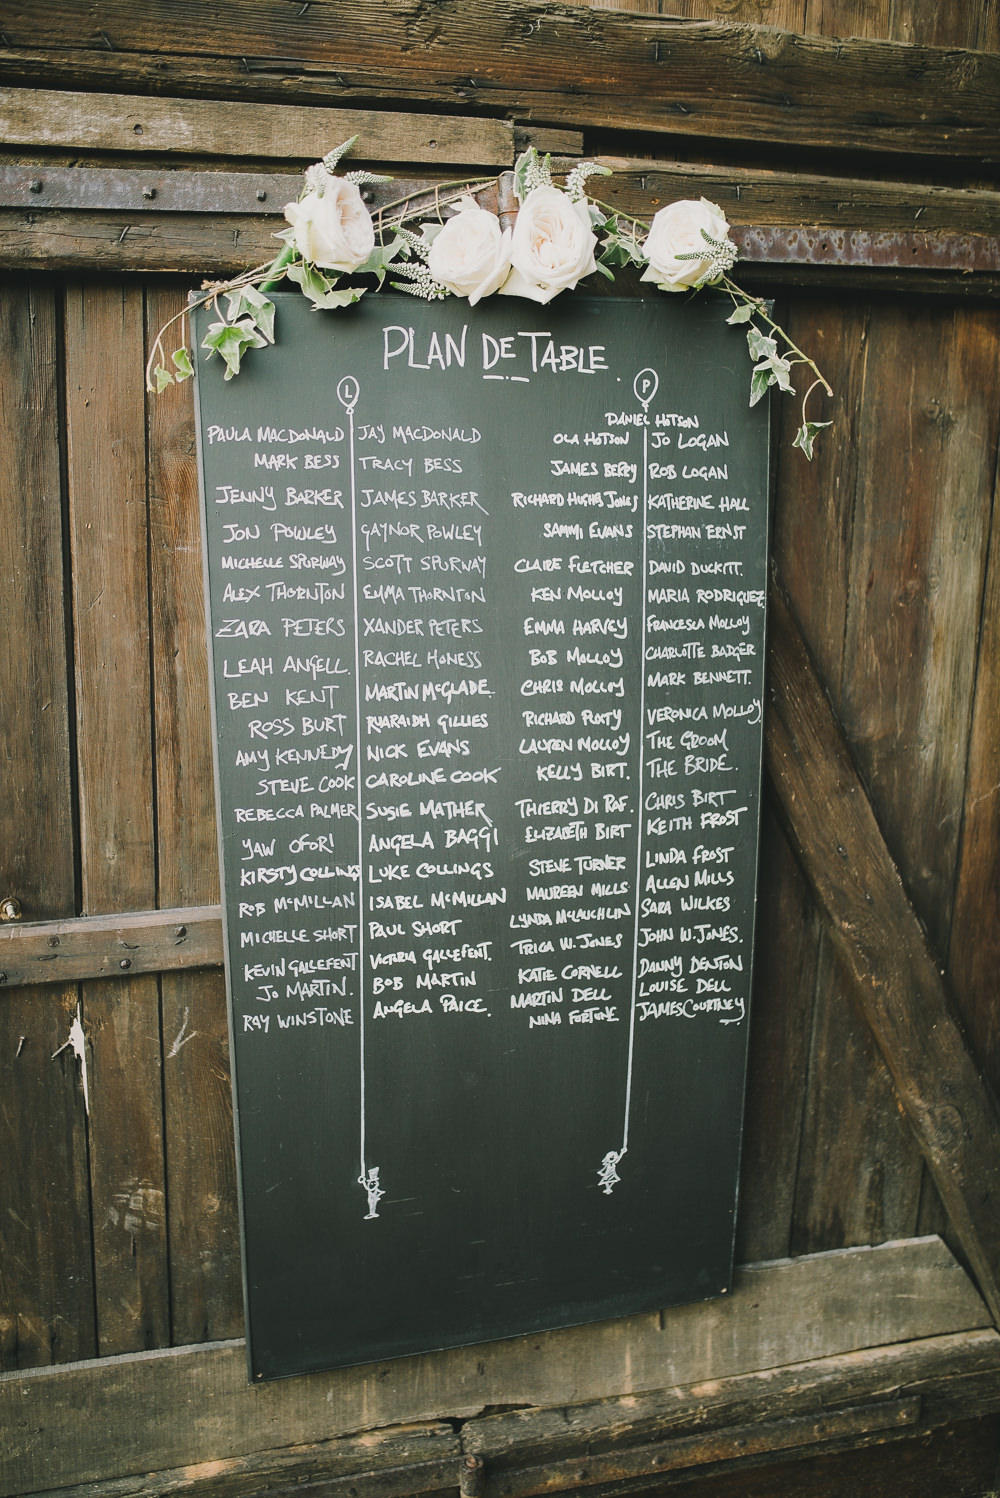 PLAN DE TABLE.
L
PAULA MACDONALD JAY MACDONALD
MARK BESS TRACY BESS
JENNY BARKER JAMES BARKER
JON POWLEY GAYNOR POWLEY
MICHELLE SPURWAY SCOTT SPURWAY
ALEX THORNTON EMMA THORNTON
ZARA PETERS XANDER PETERS
LEAH ANGELL. RACHEL HONESS
BEN KENT MARTIN McGLADE.
ROSS BURT RUARAIDH GILLIES
AMY KENNEDY NICK EVANS
STEVE COOK CAROLINE COOK
REBECCA PALMER SUSIE MATHER
YAW OFORI ANGELA BAGGI
KIRSTY COLLINGS LUKE COLLINGS
ROB McMILLAN ISABEL McMILLAN
MICHELLE SHORT PAUL SHORT
KEVIN GALLEFENT VICTORIA GALLEFENT.
JO MARTIN. BOB MARTIN
RAY WINSTONE ANGELA PAICE.
P
DANIEL HOTSON
OLA HOTSON JO LOGAN
JAMES BERRY ROB LOGAN
RICHARD HUGHES JONES KATHERINE HALL
SAMMI EVANS STEPHAN ERNST
CLAIRE FLETCHER DAVID DUCKITT.
KEN MOLLOY MARIA RODRIGUEZ.
EMMA HARVEY FRANCESCA MOLLOY
BOB MOLLOY CHARLOTTE BADGER
CHRIS MOLLOY MARK BENNETT.
RICHARD VERONICA MOLLOY.
LAUREN MOLLOY THE GROOM
KELLY BIRT. THE BRIDE.
THIERRY DI RAF. CHRIS BIRT
ELIZABETH BIRT KEITH FROST
STEVE TURNER LINDA FROST
MAUREEN MILLS ALLEN MILLS
LYNDA McLAUCHLIN SARA WILKES
TRICA W. JONES JOHN W. JONES.
KATIE CORNELL DANNY DENTON
MARTIN DELL LOUISE DELL
NINA FORTUNE JAMES COURTNEY